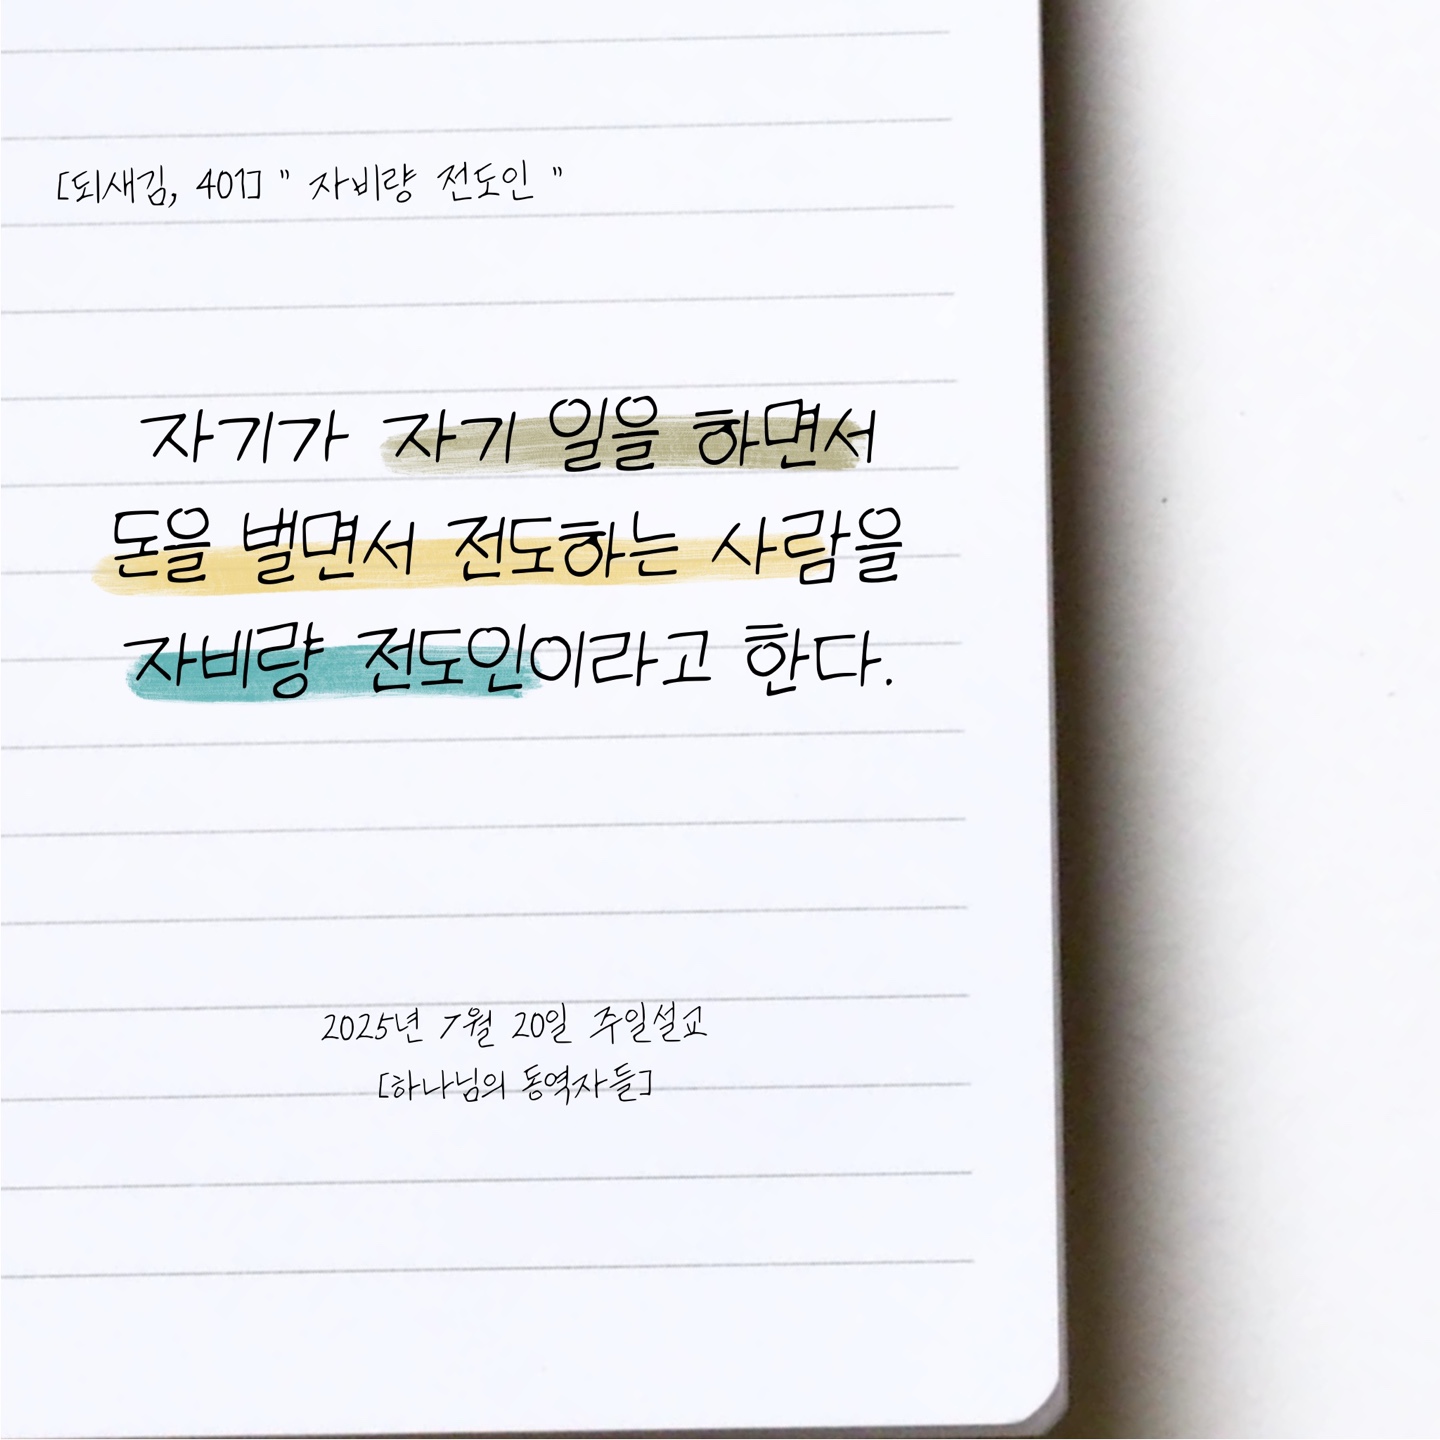 [되새김, 401] " 자비량 전도인 "
자기가 자기 일을 하면서
돈을 벌면서 전도하는 사람을
자비량 전도인이라고 한다.
2025년 7월 20일 주일설교
[하나님의 동역자들]